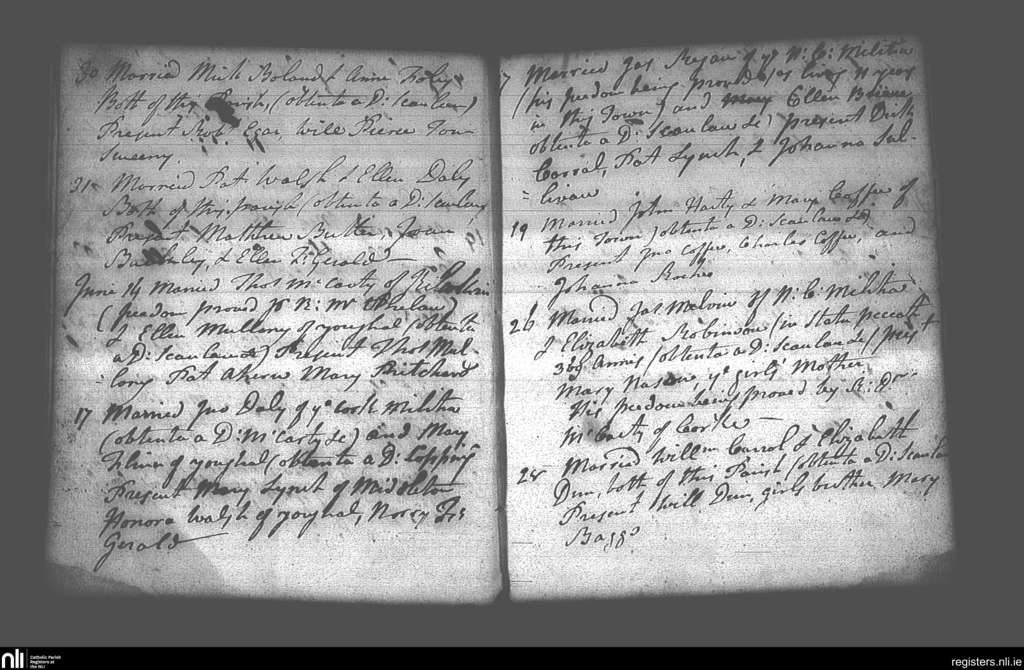 30 Married Mick Boland & Anne Foley
Both of this Parish, (obtenta a D: Scanlan)
Present Robt Egar, Will Pierce Tom
Sweeny.
31 Married Pat Walsh & Ellen Daly
Both of this parish (obtenta a D: Scanlan
Present Matthew Butler, Joan
Buckley, & Ellen Fz Gerald
June 14 Married Thos McCarty of
(freedom proved
& Ellen Mullany of youghal (obtenta
a D: Scanlan &c) Present Thos Mul-
lony Pat Aherne Mary Pritchard
17 Married Jno Daly of ye Cork Militia
(obtenta a D: McCarty &c) and Mary
Flinn of youghal (obtenta a D: Coppinger
Present Mary Lynch of Middleton
Honora Walsh of youghal, Norry Fz
Gerald
17 Married Jas Regan of ye N: C: Militia
(his freedom being proved as lives 11 years
in this Town) and Mary Ellen Briene
obtenta a D: Scanlan &c) present Dick
Carrol, Pat Lynch, & Johanna Sul-
livan
19 Married John Harty & Mary Coffee of
this Town (obtenta a D: Scanlan &c)
Present Jno Coffee, Charles Coffee, and
Johanna Roche
26 Married Jas Melvin of N: C Militia
& Elizabeth Robinson (in statu peccati
Annis (obtenta a D: Scanlan &c) (prest
Mary Nason, ye girls' Mother,
His freedom being proved by A: Dr
McCarty of Corke
28 Married Willm Carrol & Elizabeth
Dun, both of this Parish (obtenta a D: Scanlan
Present Will Dun, girls brother Mary
Baggs
nli
Catholic Parish
Registers at
the NLI
registers.nli.ie